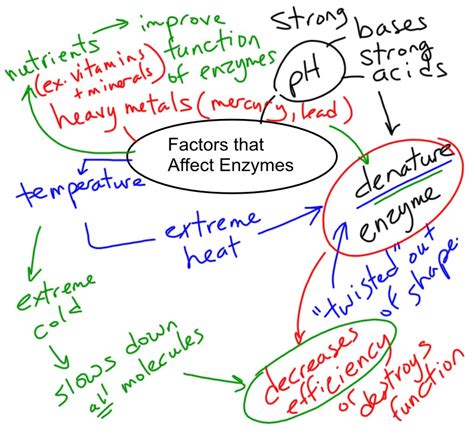 nutrients
improve
function
of enzymes
(ex. vitamins
+ minerals)
heavy metals (mercury, lead)
pH
strong
bases
strong
acids
Factors that
Affect Enzymes
temperature
extreme
heat
denature
enzyme
"twisted" out
of shape.
extreme
cold
slows down
all molecules
decreases
efficiency
or destroys
function